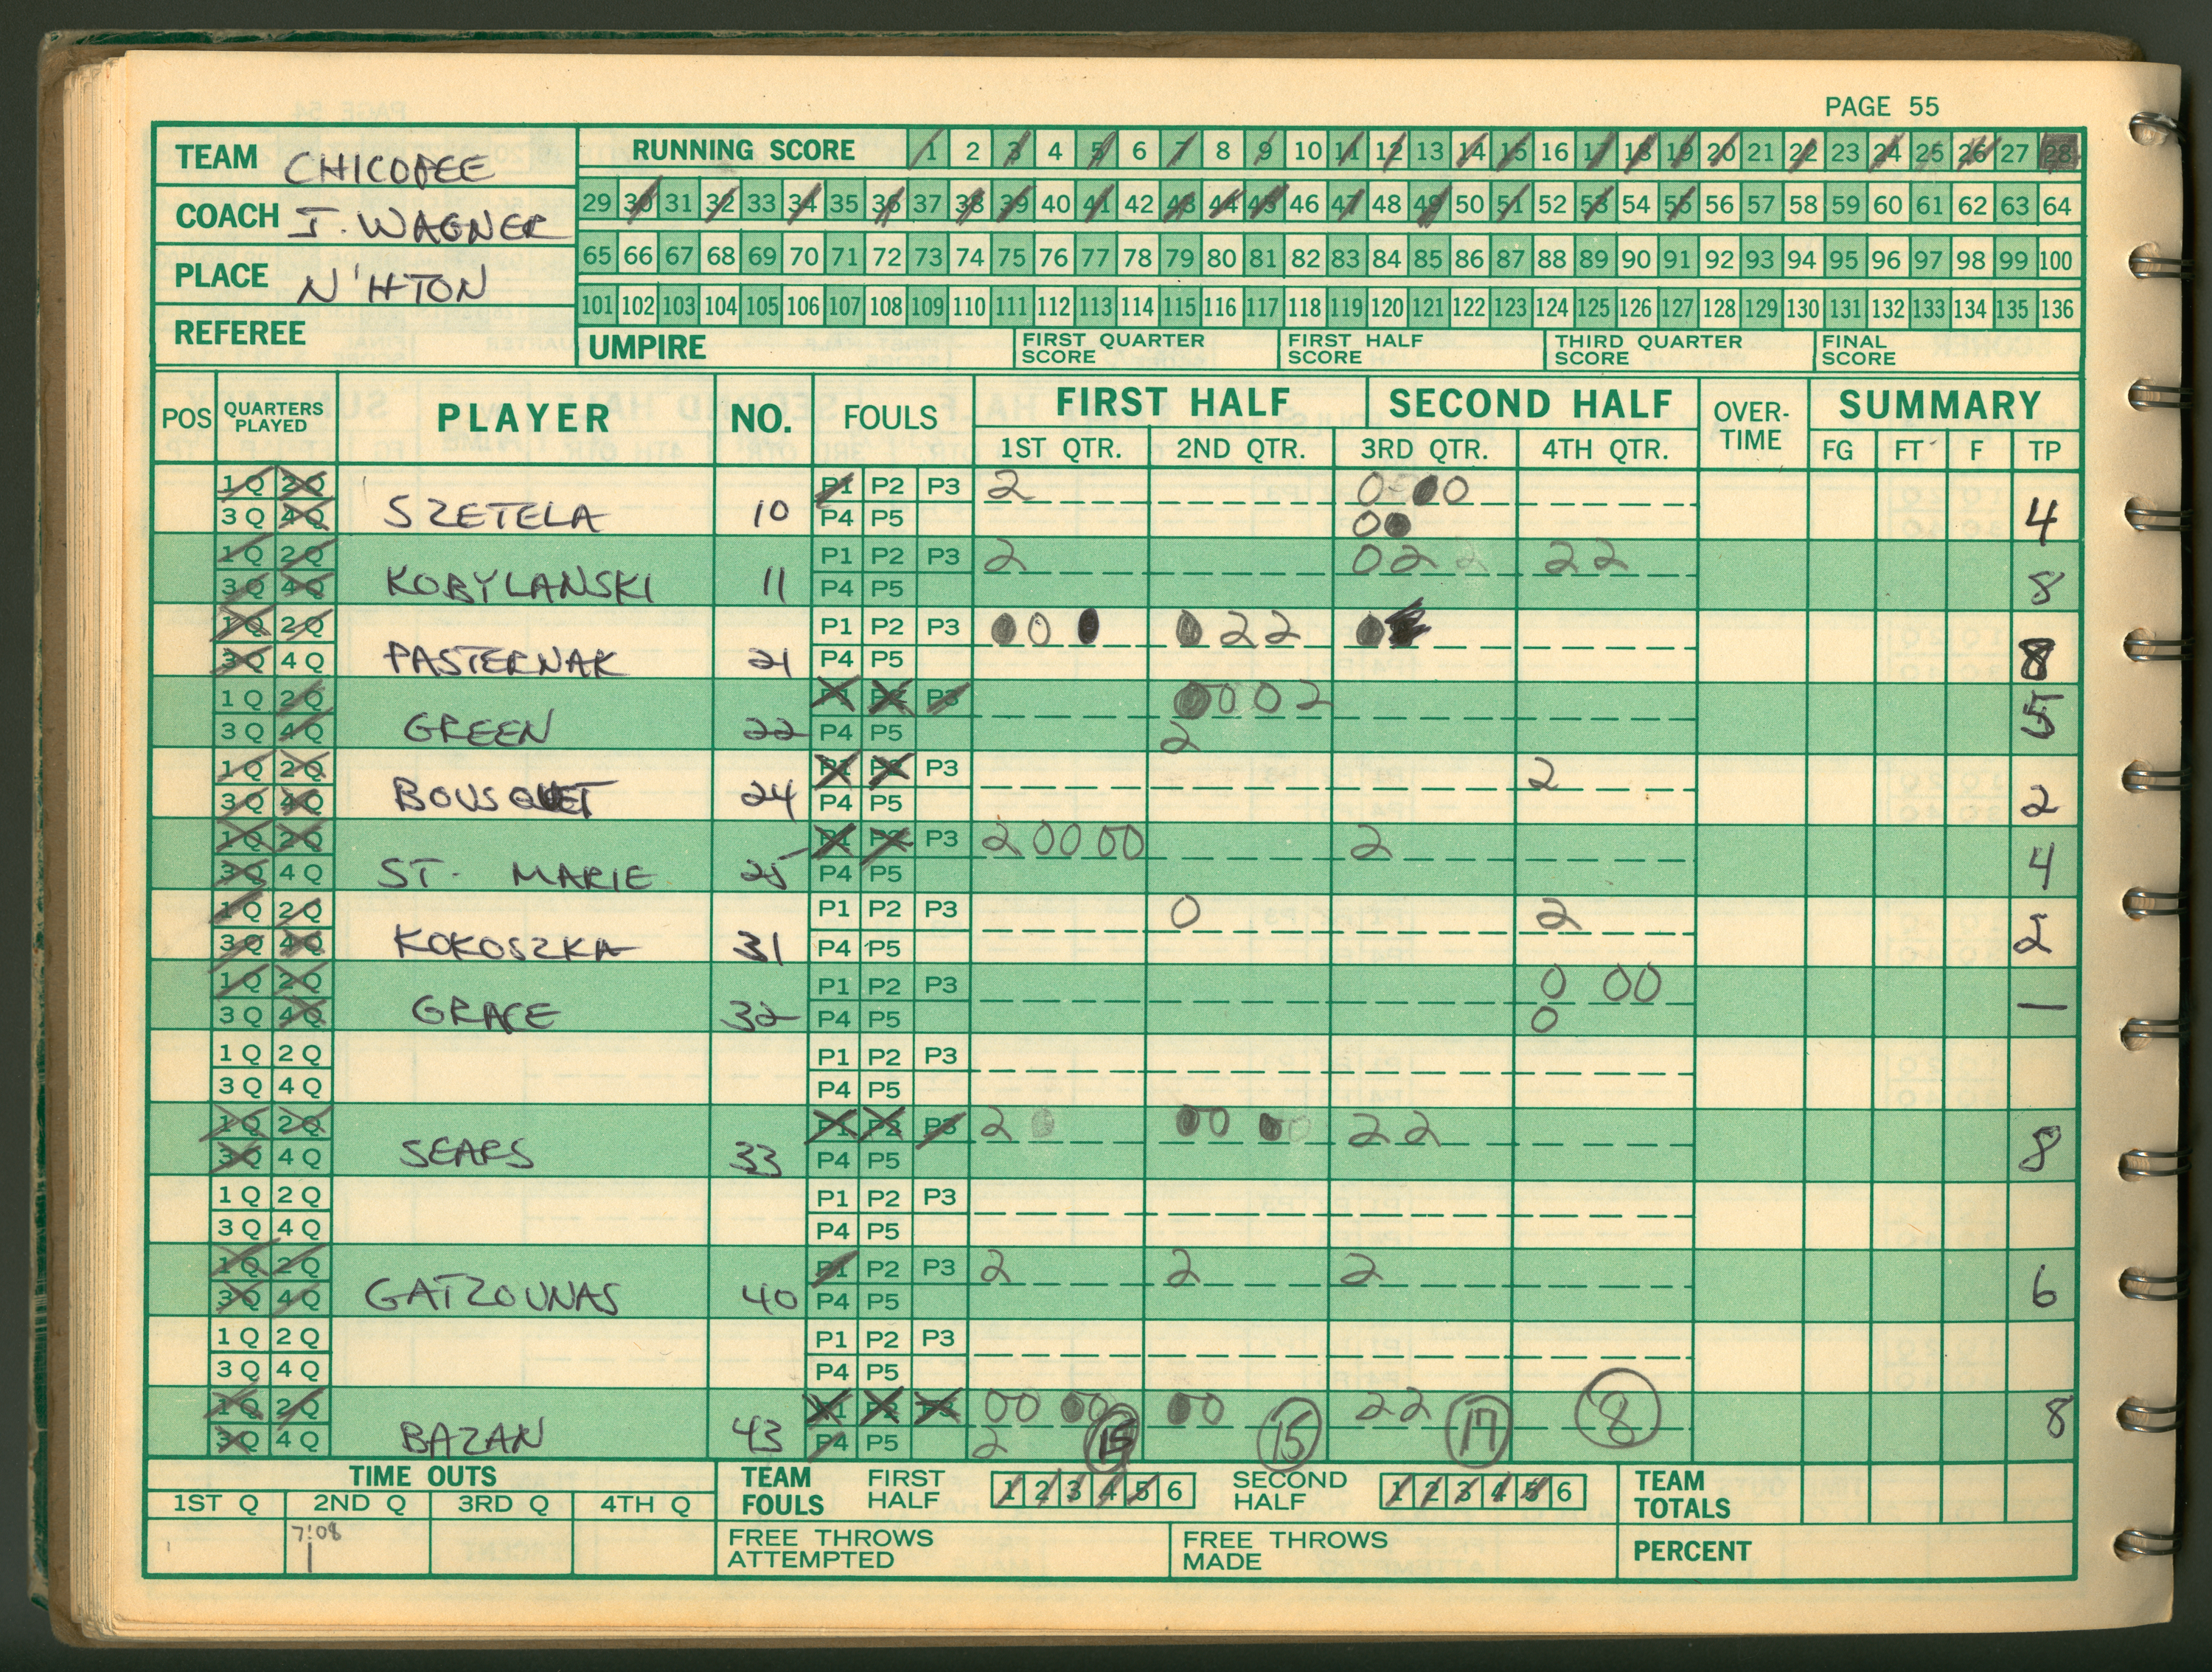 PAGE 55
TEAM CHICOPEE
COACH J. WAGNER
PLACE N'HTON
REFEREE
RUNNING SCORE 1 2 3 4 5 6 7 8 9 10 11 12 13 14 15 16 17 18 19 20 21 22 23 24 25 26 27 28
29 30 31 32 33 34 35 36 37 38 39 40 41 42 43 44 45 46 47 48 49 50 51 52 53 54 55 56 57 58 59 60 61 62 63 64
65 66 67 68 69 70 71 72 73 74 75 76 77 78 79 80 81 82 83 84 85 86 87 88 89 90 91 92 93 94 95 96 97 98 99 100
101 102 103 104 105 106 107 108 109 110 111 112 113 114 115 116 117 118 119 120 121 122 123 124 125 126 127 128 129 130 131 132 133 134 135 136
UMPIRE FIRST QUARTER SCORE FIRST HALF SCORE THIRD QUARTER SCORE FINAL SCORE
POS QUARTERS PLAYED PLAYER NO. FOULS FIRST HALF SECOND HALF OVER-TIME SUMMARY
1ST QTR. 2ND QTR. 3RD QTR. 4TH QTR. FG FT F TP
1Q 2Q P1 P2 P3 2 0 0 0
3Q 4Q SZETELA 10 P4 P5 0 0 4
1Q 2Q P1 P2 P3 2 0 2 2 2
3Q 4Q KOBYLANSKI 11 P4 P5 8
1Q 2Q P1 P2 P3 0 0 0 0 2 2 0
3Q 4Q PASTERNAK 21 P4 P5 8
1Q 2Q P1 P2 P3 0 0 0 2
3Q 4Q GREEN 22 P4 P5 2 5
1Q 2Q P1 P2 P3 2
3Q 4Q BOUSQUET 24 P4 P5 2
1Q 2Q P1 P2 P3 2 0 0 0 0 2
3Q 4Q ST. MARIE 25 P4 P5 4
1Q 2Q P1 P2 P3 0 2
3Q 4Q KOKOSZKA 31 P4 P5 2
1Q 2Q P1 P2 P3 0 0 0
3Q 4Q GRACE 32 P4 P5 0 —
1Q 2Q P1 P2 P3
3Q 4Q P4 P5
1Q 2Q P1 P2 P3 2 0 0 0 0 2 2
3Q 4Q SEARS 33 P4 P5 8
1Q 2Q P1 P2 P3
3Q 4Q P4 P5
1Q 2Q P1 P2 P3 2 2 2
3Q 4Q GATZOUNAS 40 P4 P5 6
1Q 2Q P1 P2 P3
3Q 4Q P4 P5
1Q 2Q P1 P2 P3 0 0 0 0 0 0 2 2 8
3Q 4Q BAZAN 43 P4 P5 2 15 15 17 8
TIME OUTS
1ST Q 2ND Q 3RD Q 4TH Q
7:08
TEAM FOULS FIRST HALF 1 2 3 4 5 6 SECOND HALF 1 2 3 4 5 6
FREE THROWS ATTEMPTED FREE THROWS MADE
TEAM TOTALS
PERCENT